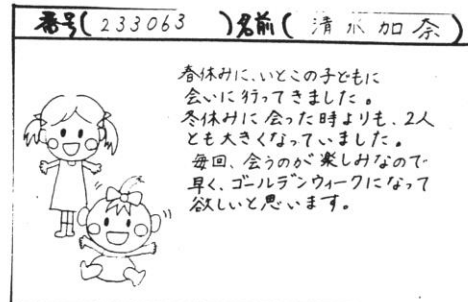 番号( 233063 )名前( 清水 加奈 )
春休みに、いとこの子どもに
会いに行ってきました。
冬休みに会った時よりも、2人
とも大きくなっていました。
毎回、会うのが楽しみなので
早く、ゴールデンウィークになって
欲しいと思います。